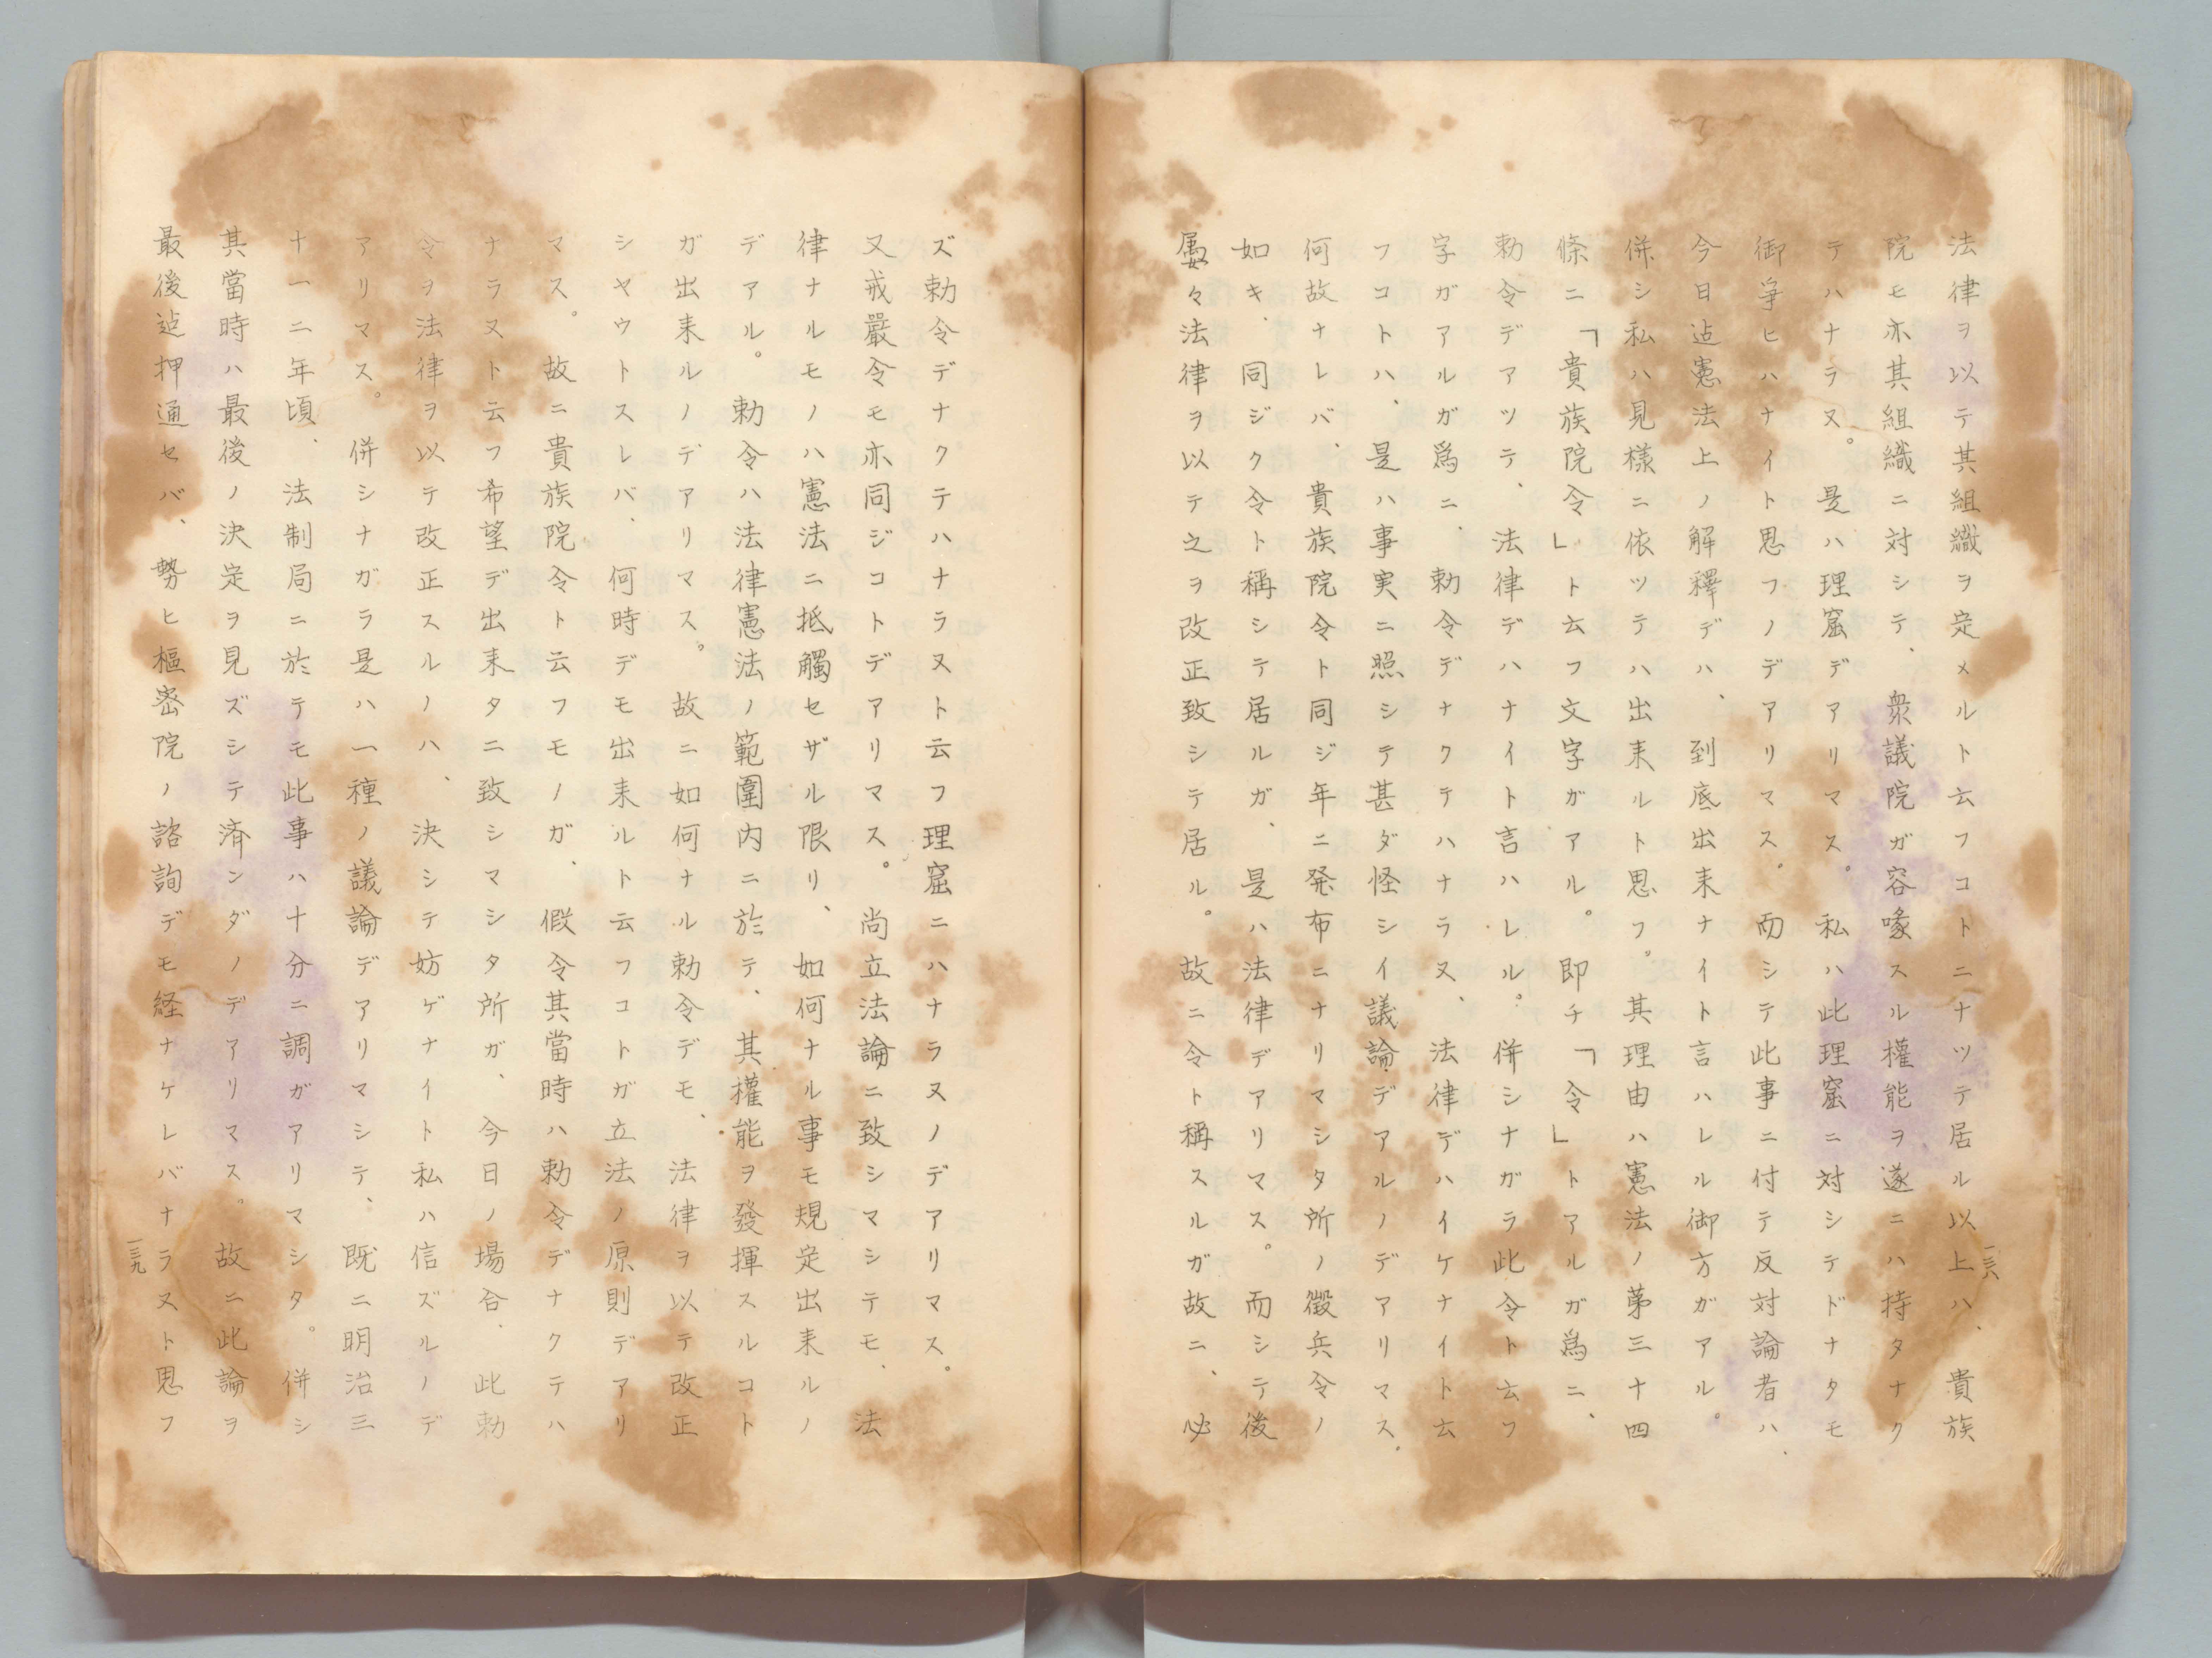 法律ヲ以テ其組織ヲ定メルト云フコトニナツテ居ル以上ハ、貴族
院モ亦其組織ニ対シテ、衆議院ガ容喙スル權能ヲ遂ニハ持タナク
テハナラヌ。是ハ理窟デアリマス。私ハ此理窟ニ対シテドナタモ
御爭ヒハナイト思フノデアリマス。而シテ此事ニ付テ反対論者ハ、
今日迠憲法上ノ解釋デハ、到底出来ナイト言ハレル御方ガアル。
併シ私ハ見樣ニ依ツテハ出来ルト思フ。其理由ハ憲法ノ第三十四
條ニ「貴族院令」ト云フ文字ガアル。即チ「令」トアルガ爲ニ、
勅令デアツテ、法律デハナイト言ハレル。併シナガラ此令ト云フ
字ガアルガ爲ニ、勅令デナクテハナラヌ、法律デハイケナイト云
フコトハ、是ハ事実ニ照シテ甚ダ怪シイ議論デアルノデアリマス。
何故ナレバ、貴族院令ト同ジ年ニ発布ニナリマシタ所ノ徴兵令ノ
如キ、同ジク令ト稱シテ居ルガ、是ハ法律デアリマス。而シテ後
屢々法律ヲ以テ之ヲ改正致シテ居ル。故ニ令ト稱スルガ故ニ、必
一三八
ズ勅令デナクテハナラヌト云フ理窟ニハナラヌノデアリマス。
又戒嚴令モ亦同ジコトデアリマス。尚立法論ニ致シマシテモ、法
律ナルモノハ憲法ニ抵觸セザル限リ、如何ナル事モ規定出来ルノ
デアル。勅令ハ法律憲法ノ範圍内ニ於テ、其權能ヲ發揮スルコト
ガ出来ルノデアリマス。故ニ如何ナル勅令デモ、法律ヲ以テ改正
シヤウトスレバ、何時デモ出来ルト云フコトガ立法ノ原則デアリ
マス。故ニ貴族院令ト云フモノガ、假令其當時ハ勅令デナクテハ
ナラヌト云フ希望デ出来タニ致シマシタ所ガ、今日ノ場合、此勅
令ヲ法律ヲ以テ改正スルノハ、決シテ妨ゲナイト私ハ信ズルノデ
アリマス。併シナガラ是ハ一種ノ議論デアリマシテ、既ニ明治三
十一二年頃、法制局ニ於テモ此事ハ十分ニ調ガアリマシタ。併シ
其當時ハ最後ノ決定ヲ見ズシテ済ンダノデアリマス。故ニ此論ヲ
最後迠押通セバ、勢ヒ樞密院ノ諮詢デモ経ナケレバナラヌト思フ
一三九